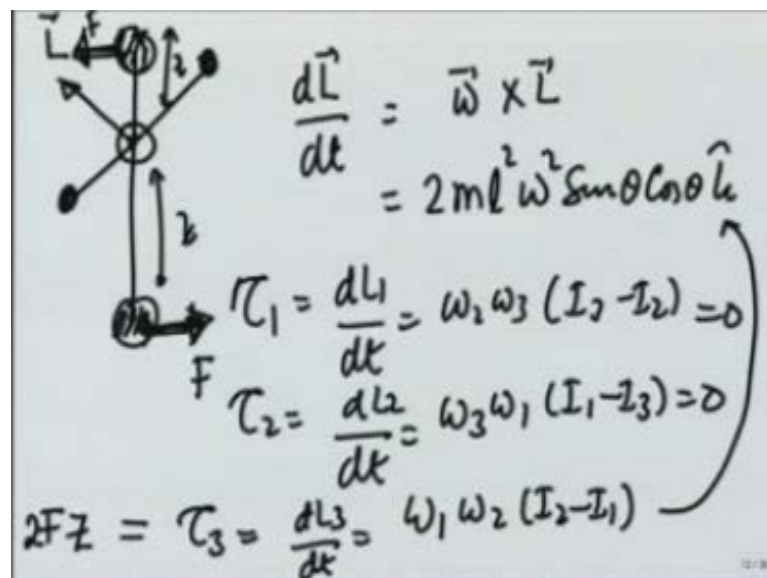 L⃗ F
z
dL⃗/dt = ω⃗ × L⃗
= 2ml²ω² Sinθ Cosθ k̂
z
τ₁ = dL₁/dt = ω₂ω₃ (I₃ - I₂) = 0
F
τ₂ = dL₂/dt = ω₃ω₁ (I₁ - I₃) = 0
2Fz = τ₃ = dL₃/dt = ω₁ω₂ (I₂ - I₁)